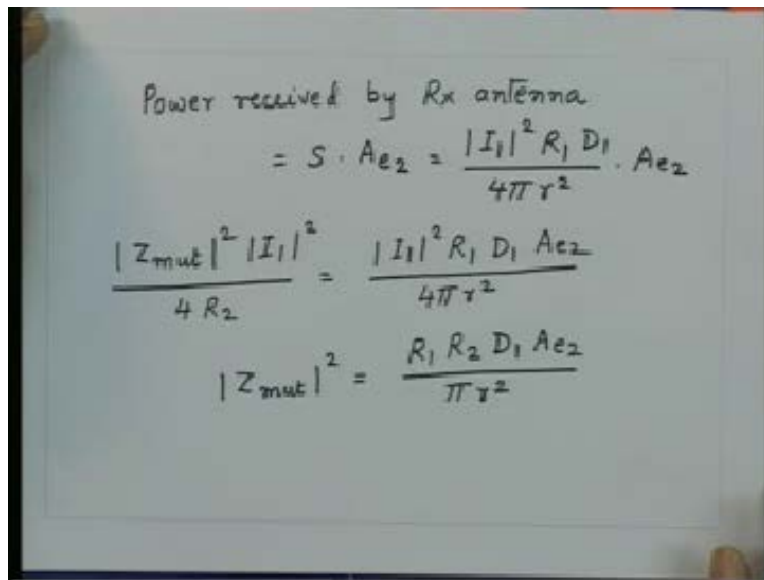 Power received by Rx antenna
= S . Ae2 = |I1|² R1 D1 / 4π r² . Ae2
|Zmut|² |I1|² / 4 R2 = |I1|² R1 D1 Ae2 / 4π r²
|Zmut|² = R1 R2 D1 Ae2 / π r²